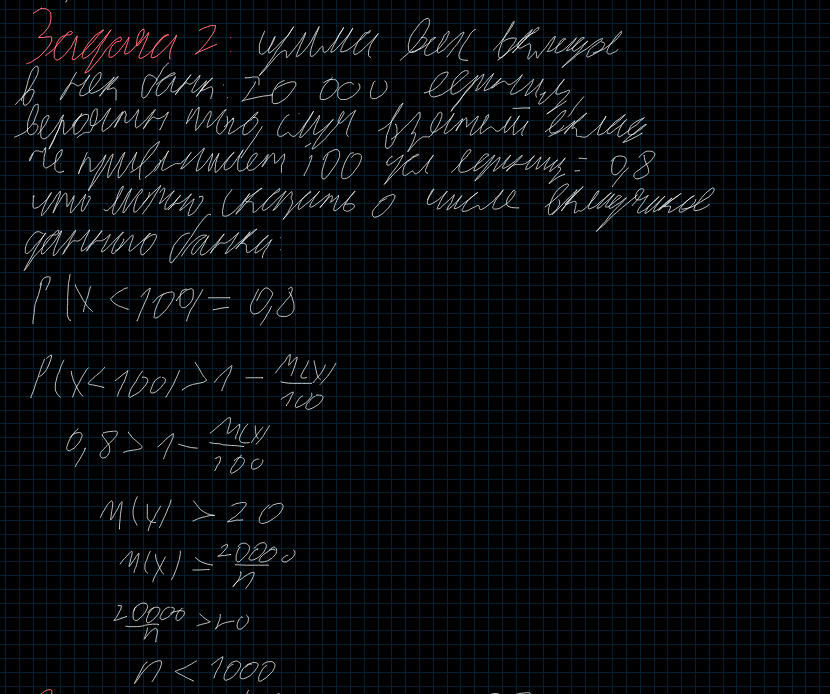 Задача 2: сумма всех вкладов
в нек банк: 20 000 единиц,
вероятн того, случ взятый вклад
не превышает 100 усл единиц = 0,8
что можно сказать о числе вкладчиков
данного банка:
P(X < 100) = 0,8
P(X < 100) > 1 - M(X)/100
0,8 > 1 - M(X)/100
M(X) > 20
M(X) = 20000/n
20000/n > 20
n < 1000